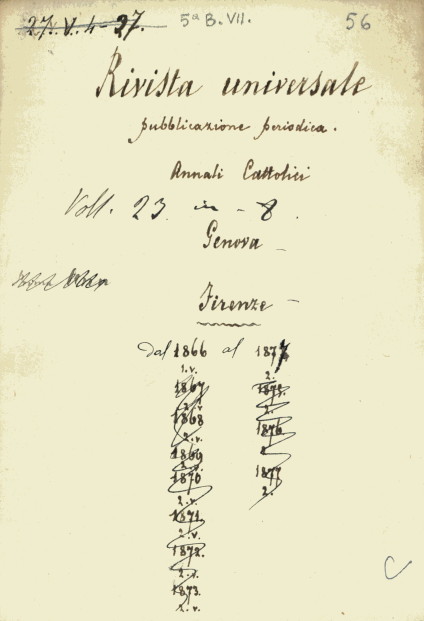 27. V. 4-27. 5ª B. VII. 56
Rivista universale
pubblicazione periodica.
Annali Cattolici
Voll. 23 in-8.
Genova -
Firenze -
dal 1866 al 1877
1. v. 2.
1867
2. v. 2.
1868 1876
2. v. 2
1869
1870 1877
2. v. 2.
1871
2. v.
1872.
2. v.
1873.
2. v.
C